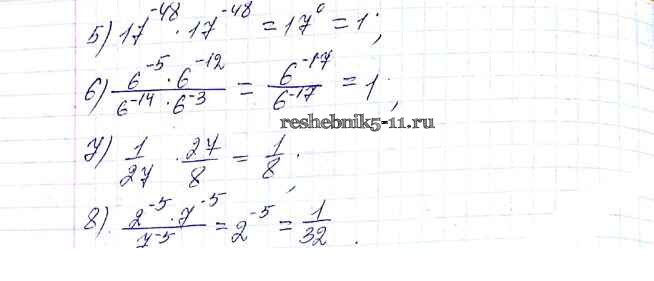 5) 17⁻⁴⁸ · 17⁻⁴⁸ = 17⁰ = 1;
6) (6⁻⁵ · 6⁻¹²)/(6⁻¹⁴ · 6⁻³) = 6⁻¹⁷/6⁻¹⁷ = 1;
reshebnik5-11.ru
7) 1/27 · 27/8 = 1/8;
8). (2⁻⁵ · 7⁻⁵)/7⁻⁵ = 2⁻⁵ = 1/32.